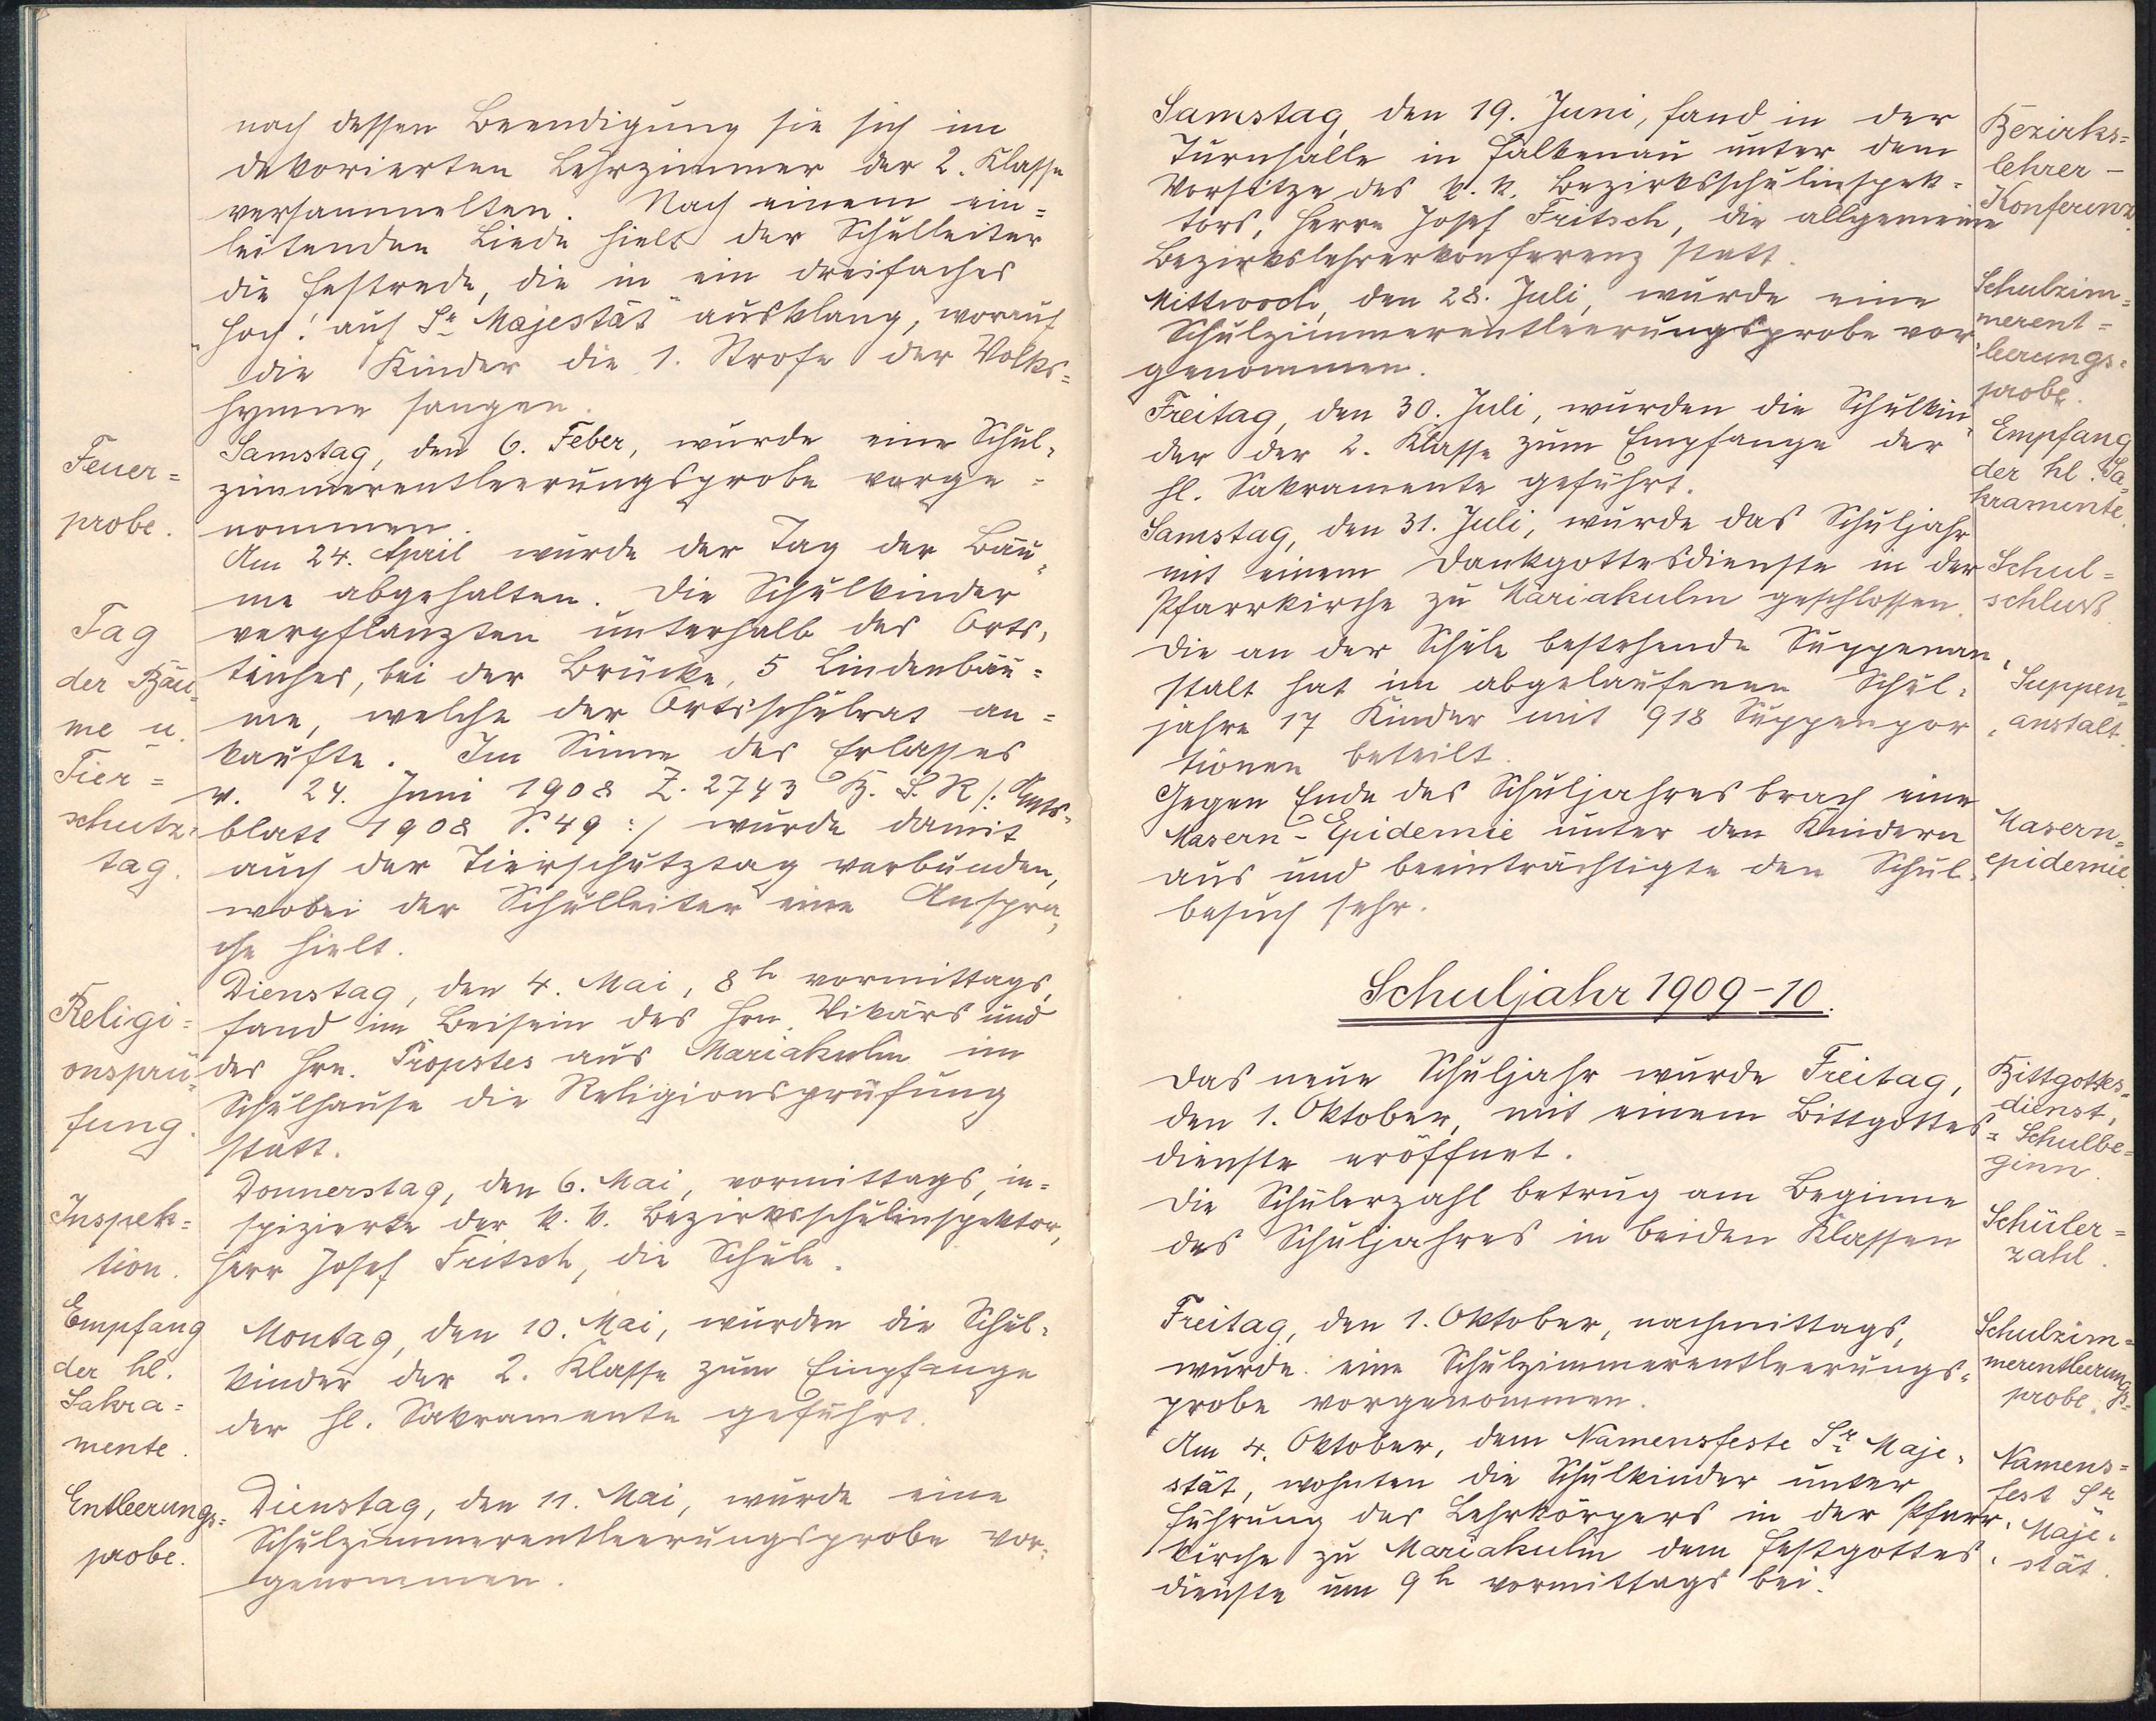 nach dessen Beendigung sie sich im
dekorierten Lehrzimmer der 2. Klasse
versammelten. Nach einem ein=
leitenden Liede hielt der Schulleiter
die Festrede, die in ein dreifaches
"Hoch! auf Sr Majestät" ausklang, worauf
die Kinder die 1. Strofe der Volks=
hymne sangen.
Feuer=
probe.
Samstag, den 6. Feber, wurde eine Schul=
zimmerentleerungsprobe vorge=
nommen.
Tag
der Bäu=
me u.
Tier=
schutz=
tag.
Am 24. April wurde der Tag der Bäu=
me abgehalten. Die Schulkinder
verpflanzten unterhalb des Orts=
teiches, bei der Brücke, 5 Lindenbäu=
me, welche der Ortsschulrat an=
kaufte. Im Sinne des Erlasses
v. 24. Juni 1908 Z. 2743 B. S. R /: Amts=
blatt 1908 S. 49 :/ wurde damit
auch der Tierschutztag verbunden,
wobei der Schulleiter eine Anspra=
che hielt.
Religi=
onsprü=
fung.
Dienstag, den 4. Mai, 8h vormittags,
fand im Beisein des Hrn. Vikärs und
des Hrn. Propstes aus Mariakulm im
Schulhause die Religionsprüfung
statt.
Inspek=
tion.
Donnerstag, den 6. Mai, vormittags, in=
spizierte der k. k. Bezirksschulinspektor,
Herr Josef Fritsch, die Schule.
Empfang
der hl.
Sakra=
mente.
Montag, den 10. Mai, wurden die Schul=
kinder der 2. Klasse zum Empfange
der hl. Sakramente geführt.
Entleerungs=
probe.
Dienstag, den 11. Mai, wurde eine
Schulzimmerentleerungsprobe vor=
genommen.
Samstag, den 19. Juni, fand in der
Turnhalle in Falkenau unter dem
Vorsitze des k. k. Bezirksschulinspek=
tors, Herrn Josef Fritsch, die allgemeine
Bezirkslehrerkonferenz statt.
Bezirks=
lehrer-
Konferenz.
Mittwoch, den 28. Juli, wurde eine
Schulzimmerentleerungsprobe vor
genommen.
Schulzim=
merent=
leerungs=
probe.
Freitag, den 30. Juli, wurden die Schulkin=
der der 2. Klasse zum Empfange der
hl. Sakramente geführt.
Empfang
der hl. Sa=
kramente.
Samstag, den 31. Juli, wurde das Schuljahr
mit einem Dankgottesdienste in der
Pfarrkirche zu Mariakulm geschlossen.
Schul=
schluß.
Die an der Schule bestehende Suppenan=
stalt hat im abgelaufenen Schul=
jahre 17 Kinder mit 918 Suppenpor
tionen beteilt.
Suppen=
anstalt.
Gegen Ende des Schuljahres brach eine
Masern-Epidemie unter den Kindern
aus und beeinträchtigte den Schul=
besuch sehr.
Masern=
epidemie.
Schuljahr 1909-10.
Das neue Schuljahr wurde Freitag,
den 1. Oktober, mit einem Bittgottes=
dienste eröffnet.
Bittgottes=
dienst,
Schulbe=
ginn.
Die Schülerzahl betrug am Beginne
des Schuljahres in beiden Klassen
Schüler=
zahl.
Freitag, den 1. Oktober, nachmittags,
wurde eine Schulzimmerentleerungs=
probe vorgenommen.
Schulzim=
merentleerungs=
probe.
Am 4. Oktober, dem Namensfeste Sr Maje=
stät, wohnten die Schulkinder unter
Führung des Lehrkörpers in der Pfarr=
kirche zu Mariakulm dem Festgottes=
dienste um 9h vormittags bei.
Namens=
fest Sr
Maje=
stät.